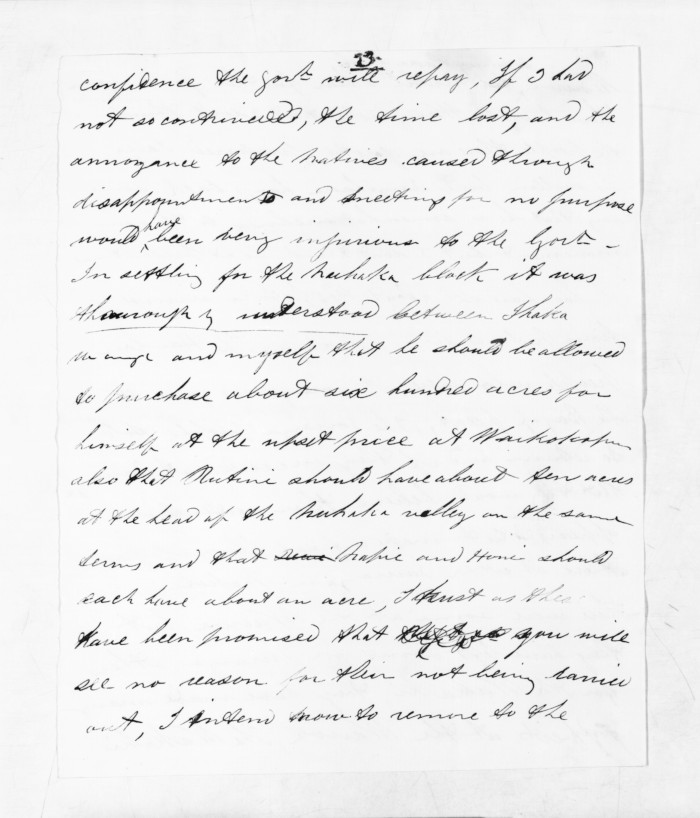 13.
confidence the Govt will repay, If I had
not so contrived, the time lost, and the
annoyance to the Natives caused through
disappointments and meetings for no purpose
would have been very injurious to the Govt –
In settling for the Nuhaka block it was
thourough y understood between Ihaka
and myself that he should be allowed
to purchase about six hundred acres for
himself at the upset price at Waikokopu
also that Rutini should have about ten acres
at the head of the Nuhaka valley on the same
terms and that and should
each have about an acre, I trust as these
have been promised that you will
see no reason for their not being carried
out, I intend now to remove to the